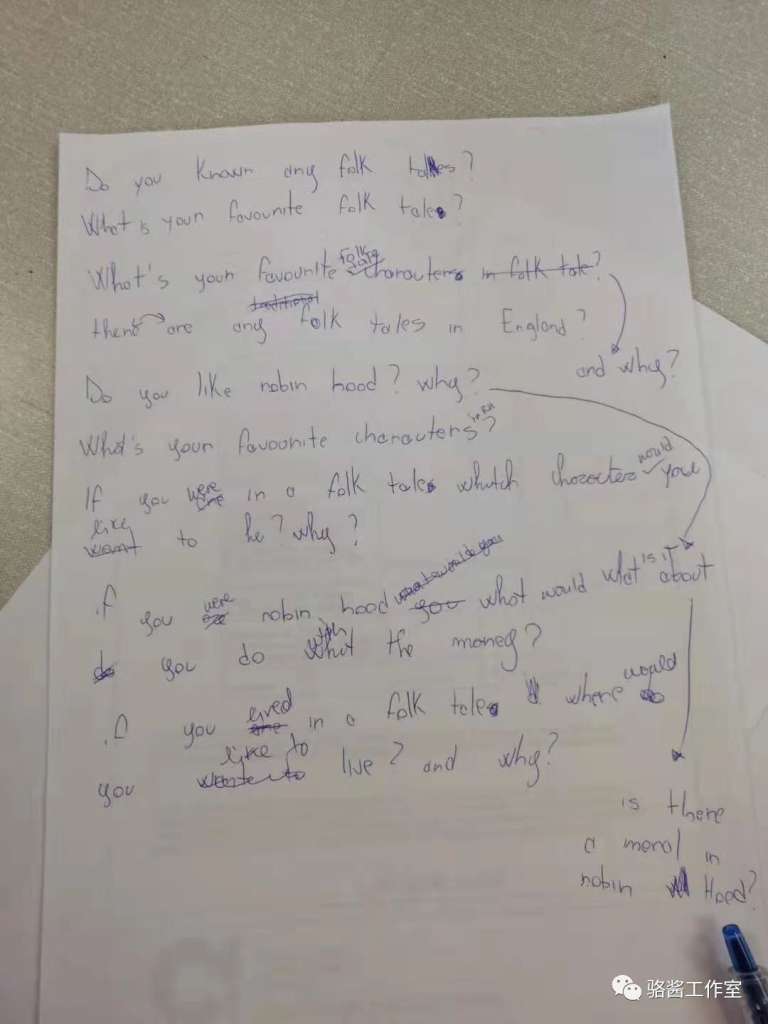 Do you known any folk tales?
What is your favourite folk tale?
What's your favourite folk tale characters in folk tale?
and why?
traditional
there are any folk tales in England?
Do you like robin hood? why?
What's your favourite characters in RH?
If you were in a folk tale whitch character would you
like want to be? why?
is it
If you were robin hood you what would what about
do you do with the money?
If you lived in a folk tale where would
you like to live? and why?
is there
a moral in
robin Hood?
骆酱工作室